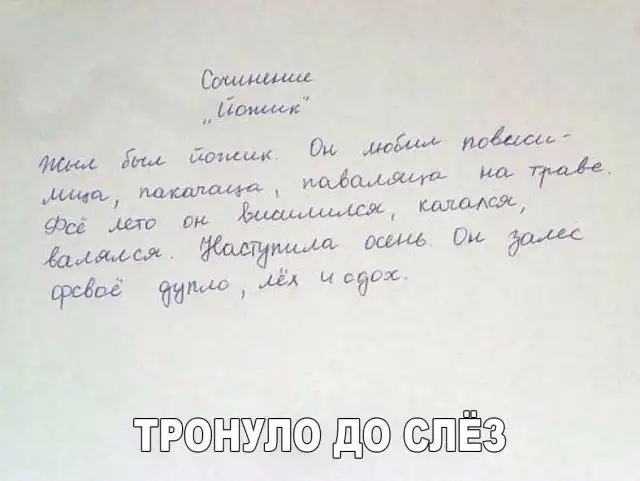 Сочинение
"Йожик"
Жыл был йожик. Он любил повесели-
мица, покачаца, паваляца на траве.
Фсё лето он висилился, качался,
валялся. Наступила осень. Он залес
фсвоё дупло, лёх и сдох.
ТРОНУЛО ДО СЛЁЗ